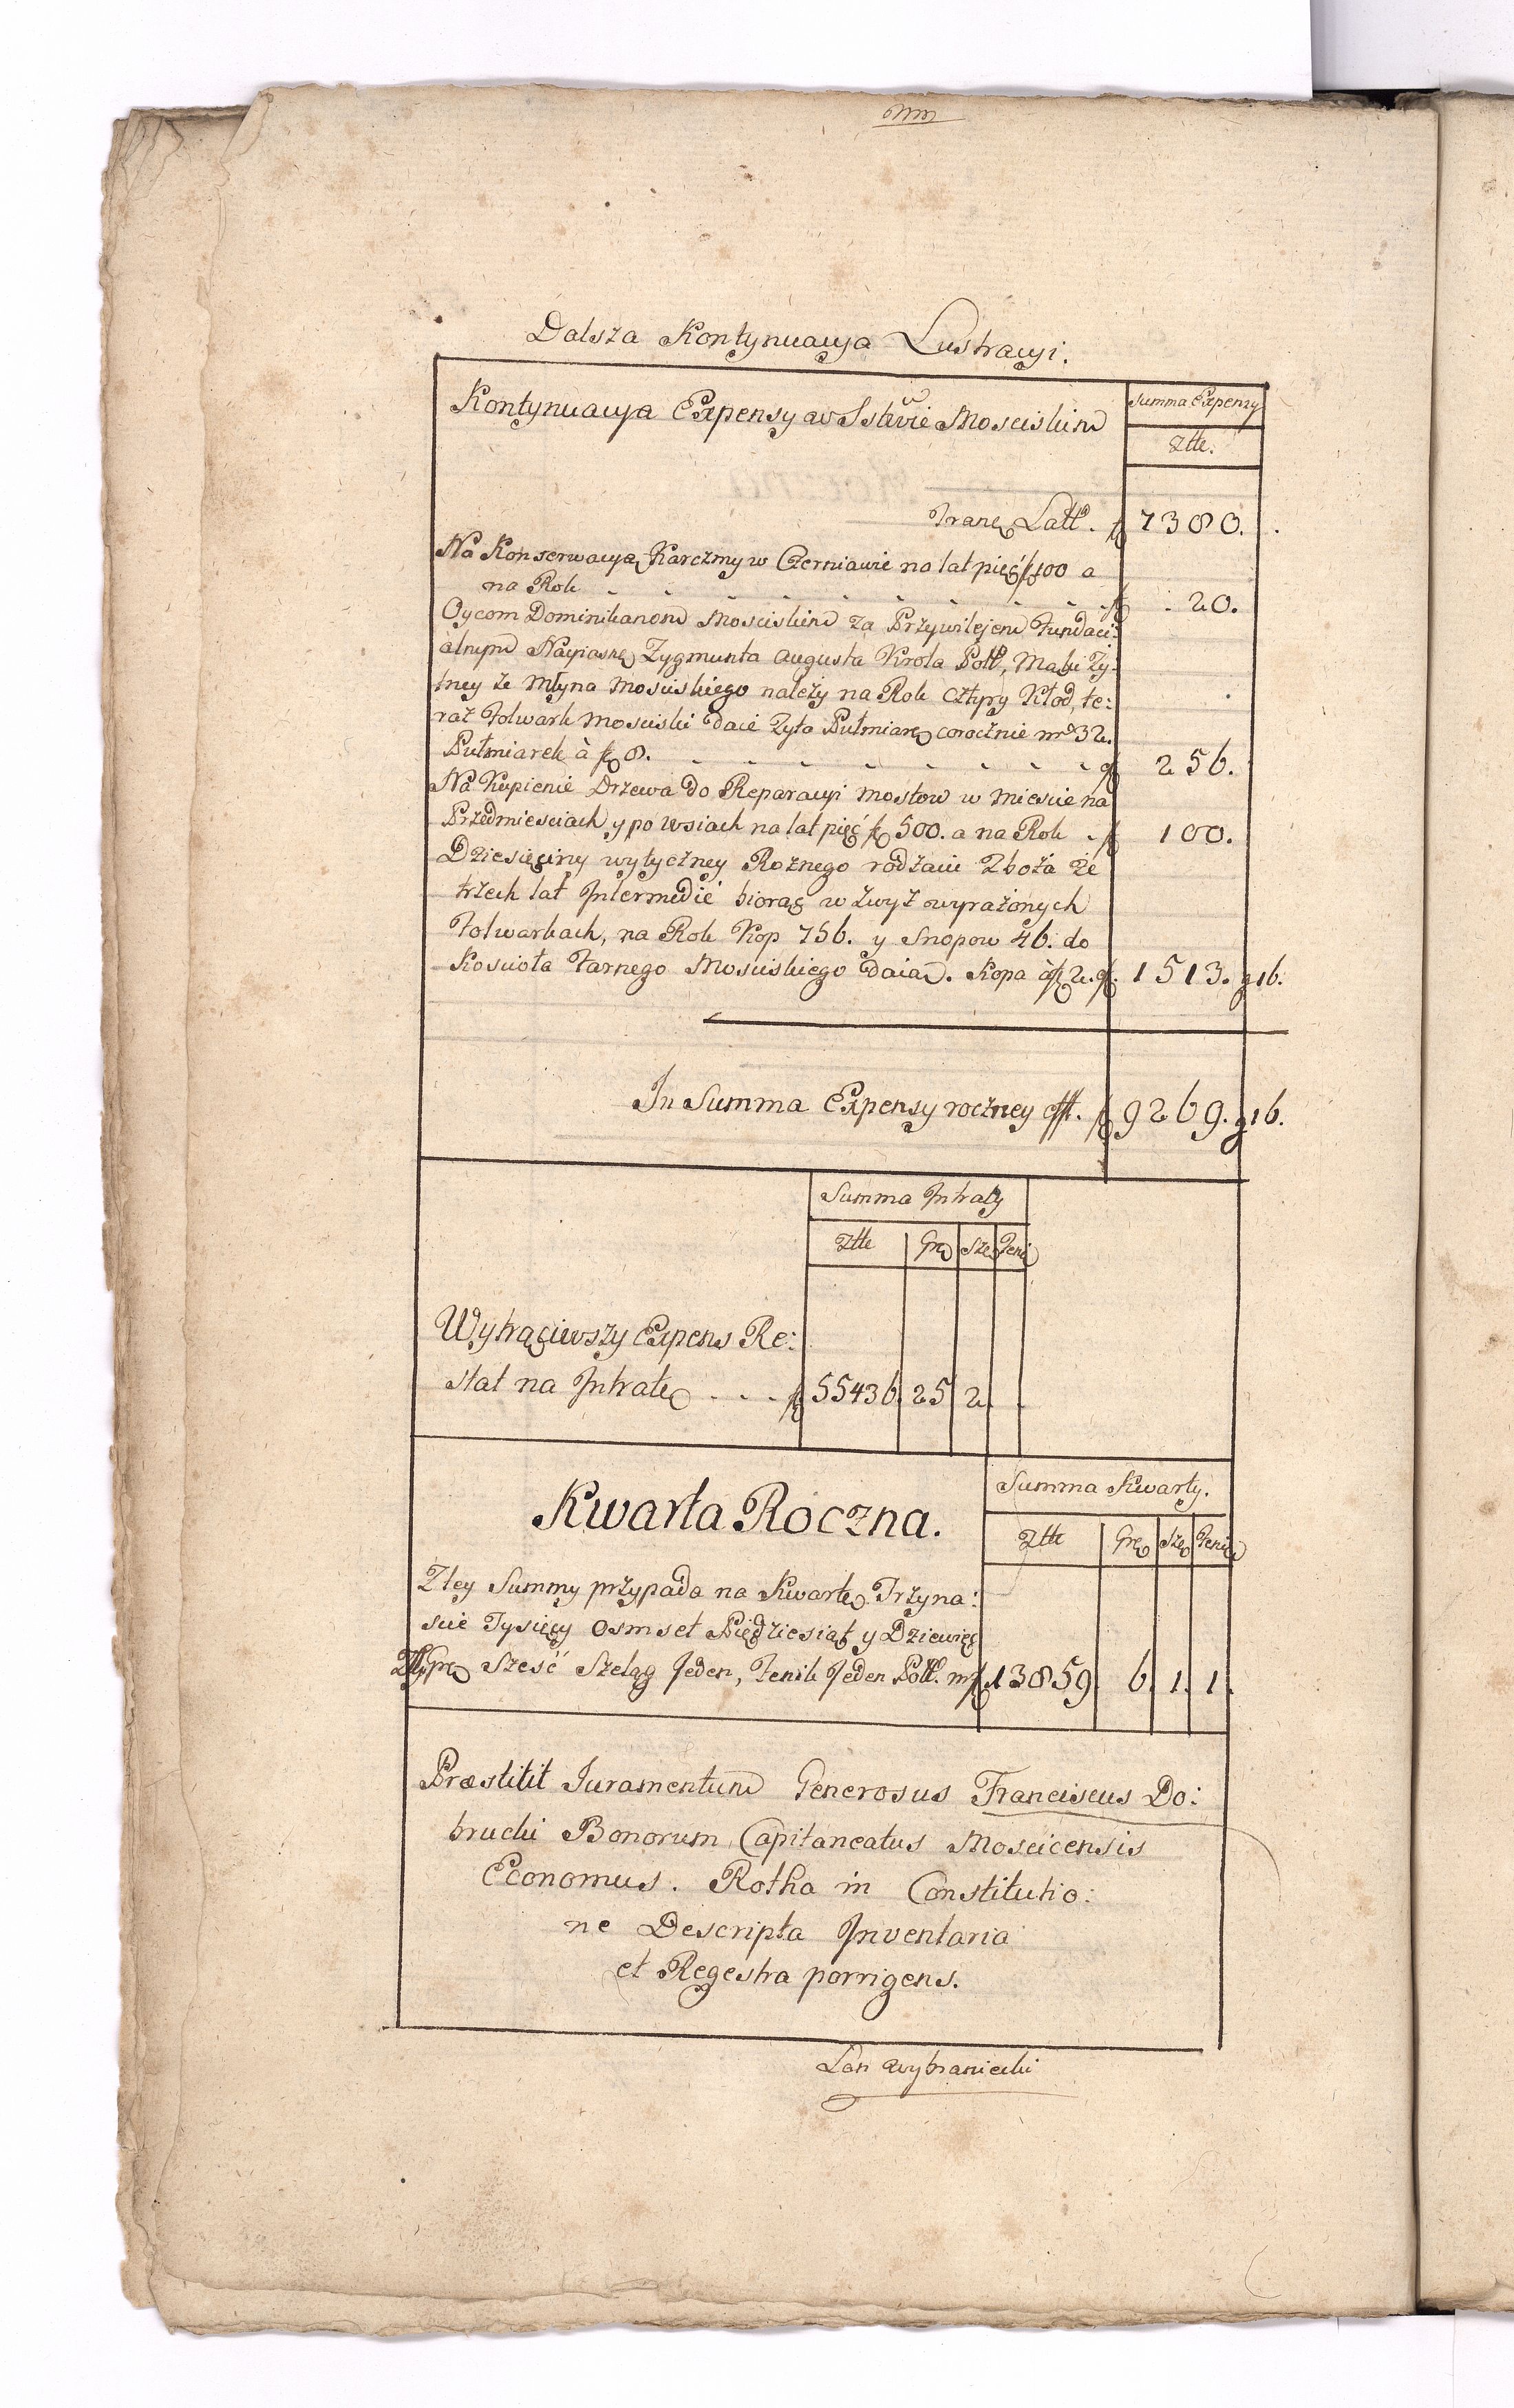 Dalsza Kontynuacya Lustracyi.
Kontynuacya Expensy w Sstwie Mosciskim
Summa Expensy
Złłe.
Latł. f 7380.
Na Konserwacyą Karczmy w Czerniawie na lat pięć f 100 a
na Rok - - - - - - - f 20.
Oycom Dominikanom Mosciskim za Przywilejem Fundaci:
alnym Nayiasnę Zygmunta Augusta Krola Poll, Mąki Ży:
tney ze Młyna Mosciskiego należy na Rok cztyry Kłod, te:
raz Folwark Mosciski daie Zyta Pułmiarę corocznie nro 32.
Pułmiarek à f 8. - - - - - - - f 256.
Na Kupienie Drzewa do Reparacyi Mostow w Miescie na
Przedmiesciach y po wsiach na lat pięć f 500. a na Rok - f 100.
Dziesięciny wytyczney Roznego rodzaiu Zboża ze
trzech lat Intermedić biorąc w zwyż wyrażonych
Folwarkach, na Rok Kop 756. y Snopow 46. do
Koscioła Farnego Mosciskiego daią. Kopa à f 2. f. 1513. g 16.
In Summa Expensy roczney f 9269. g 16.
Summa Intraty
Złłe Grę Szę Peni
Wytrąciwszy Expens Re:
stat na Intratę . . . f 55436. 25 2.
Kwarta Roczna.
Summa Kwarty.
Złłe Grę Szę Peni
Z tey Summy przypada na Kwartę Trzyna:
scie Tysięcy Osmset Pięđziesiąt y Dziewięć
Złł, grę Szesć Szeląg Jeden, Fenik Jeden Poll. f 13859. 6. 1. 1.
Præstitit Juramentum Generosus Franciscus Do:
brucki Bonorum Capitaneatus Moscicensis
Economus. Rotha in Constitutio:
ne Descripta Inventaria
et Regestra porrigens.
Łan wybraniecki